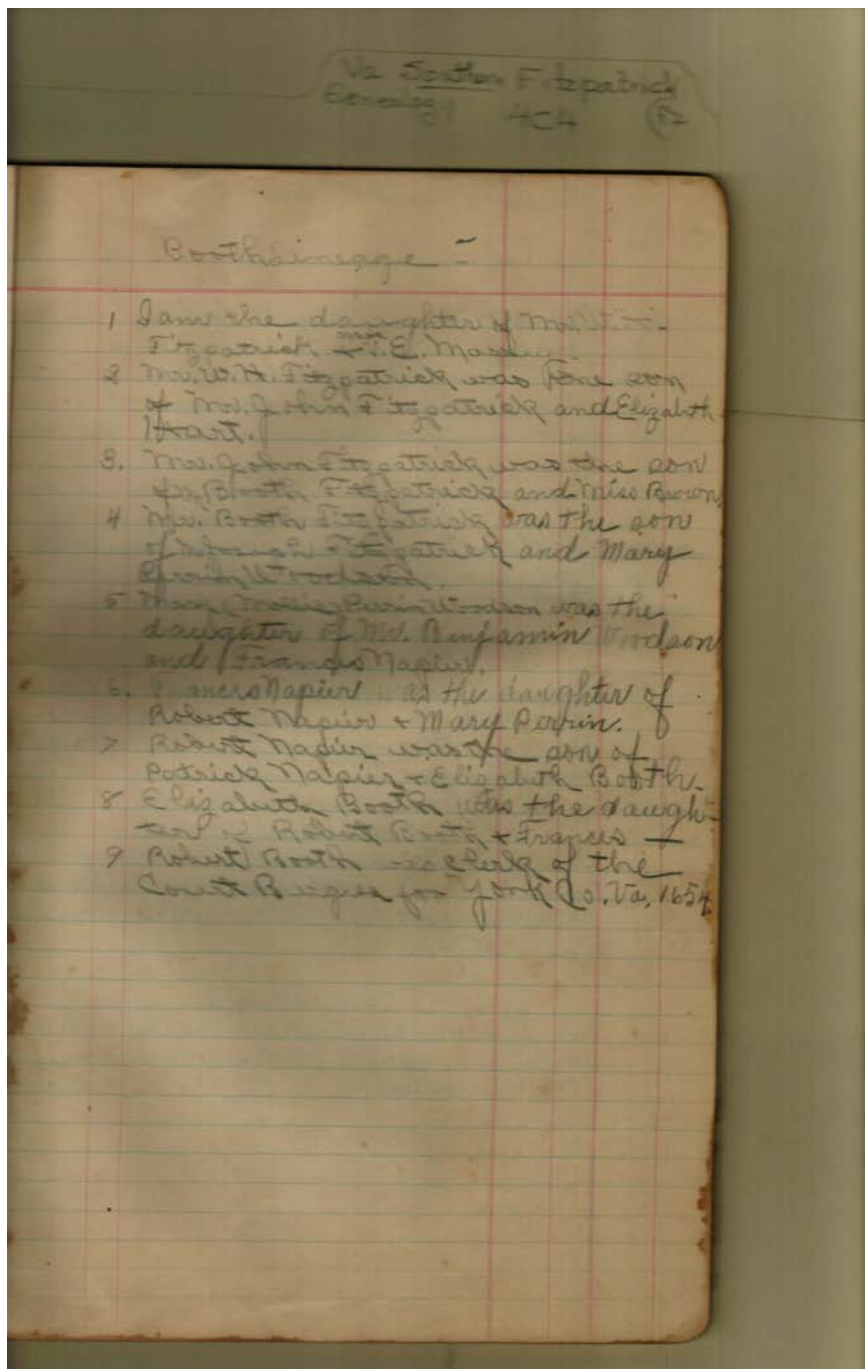 Va Southern Fitzpatrick
Genealogy 4C4
Booth Lineage -
1 I am the daughter of Mr. W. H.
Fitzpatrick + Miss T.E.
2 Mr. W. H. Fitzpatrick was the son
of Mr. John Fitzpatrick and Elizabeth
Hart.
3. Mr. John Fitzpatrick was the son
of Booth Fitzpatrick and Miss Brown
4 Mr. Booth Fitzpatrick was the son
of Joseph Fitzpatrick and Mary
Perrin Woodson.
5 Mary (Mollie) Perrin Woodson was the
daughter of Mr. Benjamin Woodson
and Francis Napier.
6. Francis Napier was the daughter of
Robert Napier + Mary Perrin.
7 Robert Napier was the son of
Patrick Napier + Elizabeth Booth.
8 Elizabeth Booth was the daugh-
ter of Robert Booth + Frances —
9 Robert Booth was Clerk of the
Court for York Co. Va. 1654.